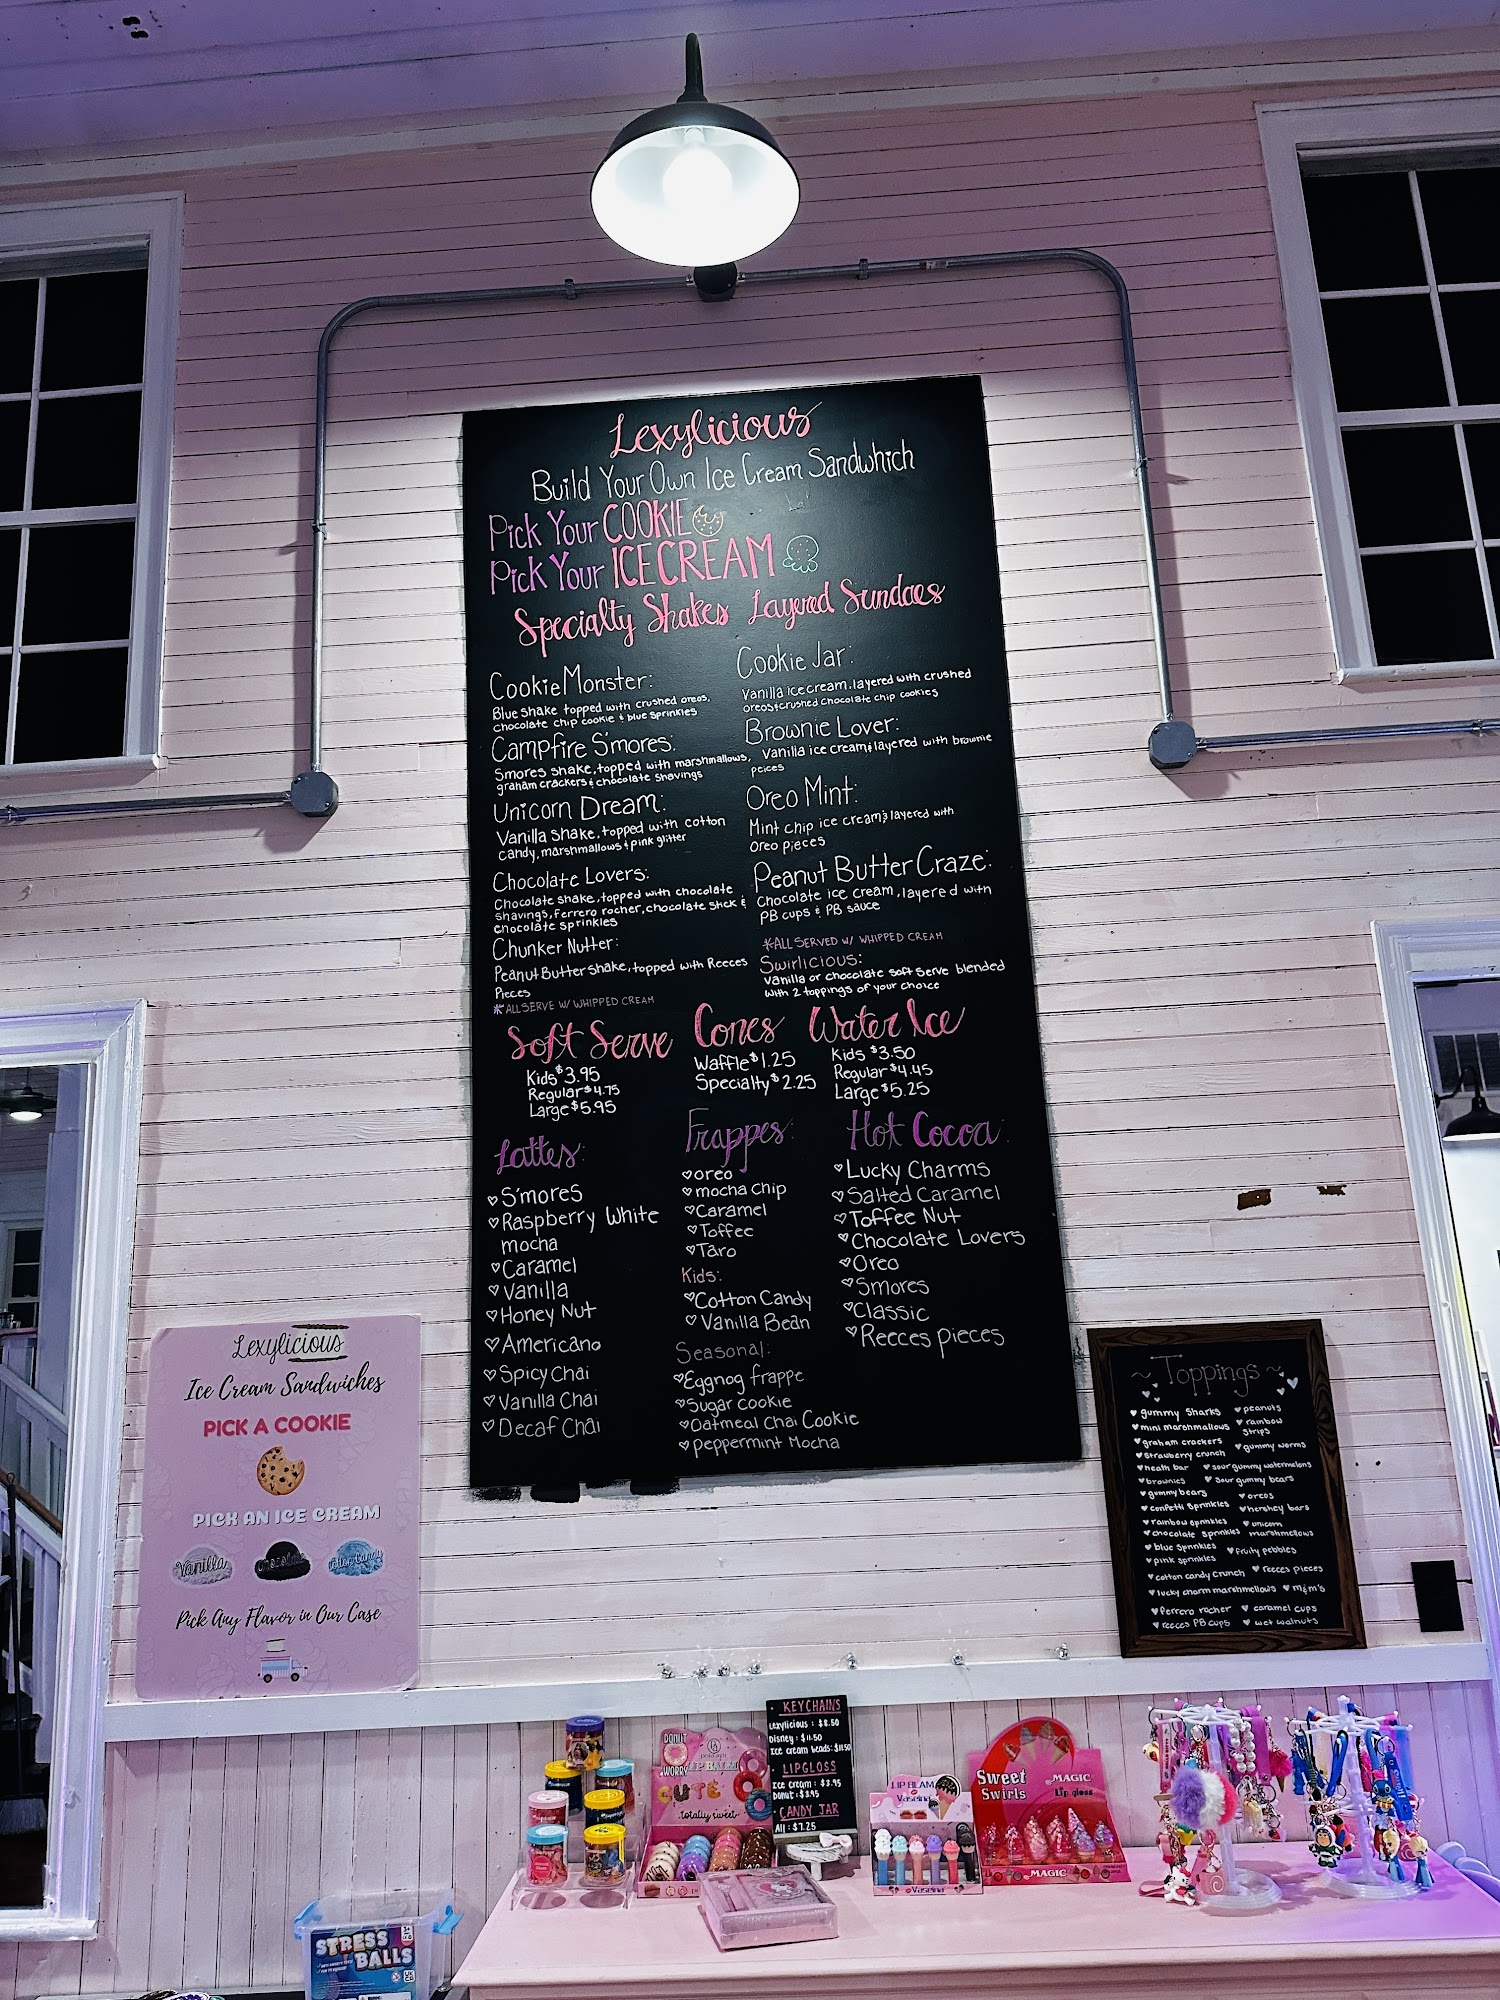 Lexylicious
Build Your Own Ice Cream Sandwhich
Pick Your COOKIE
Pick Your ICECREAM
Specialty Shakes
Cookie Monster:
Blue shake topped with crushed oreos,
chocolate chip cookie & blue sprinkles
Campfire S'mores:
Smores shake, topped with marshmallows,
graham crackers & chocolate shavings
Unicorn Dream:
Vanilla shake, topped with cotton
candy, marshmallows & pink glitter
Chocolate Lovers:
Chocolate shake, topped with chocolate
shavings, ferrero rocher, chocolate stick &
chocolate sprinkles
Chunker Nutter:
Peanut Butter shake, topped with Reeces
Pieces
*ALL SERVE W/ WHIPPED CREAM
Layered Sundaes
Cookie Jar:
Vanilla ice cream, layered with crushed
oreos & crushed chocolate chip cookies
Brownie Lover:
Vanilla ice cream & layered with brownie
peices
Oreo Mint:
Mint chip ice cream & layered with
Oreo pieces
Peanut Butter Craze:
Chocolate ice cream, layered with
PB cups & PB sauce
*ALL SERVED W/ WHIPPED CREAM
Swirlicious:
Vanilla or chocolate soft serve blended
with 2 toppings of your choice
Soft Serve
Kids $3.95
Regular $4.75
Large $5.95
Cones
Waffle $1.25
Specialty $2.25
Water Ice
Kids $3.50
Regular $4.45
Large $5.25
Lattes:
S'mores
Raspberry White
mocha
Caramel
Vanilla
Honey Nut
Americano
Spicy Chai
Vanilla Chai
Decaf Chai
Frappes:
oreo
mocha chip
Caramel
Toffee
Taro
Kids:
Cotton Candy
Vanilla Bean
Seasonal:
Eggnog frappe
Sugar cookie
Oatmeal Chai Cookie
peppermint Mocha
Hot Cocoa:
Lucky Charms
Salted Caramel
Toffee Nut
Chocolate Lovers
Oreo
Smores
Classic
Reeces pieces
Lexylicious
Ice Cream Sandwiches
PICK A COOKIE
PICK AN ICE CREAM
Vanilla
Chocolate
Cotton Candy
Pick Any Flavor in Our Case
~ Toppings ~
gummy sharks
mini marshmallows
graham crackers
strawberry crunch
heath bar
brownies
gummy bears
confetti sprinkles
rainbow sprinkles
chocolate sprinkles
blue sprinkles
pink sprinkles
cotton candy crunch
lucky charm marshmallows
ferrero rocher
reeces PB cups
peanuts
rainbow
strips
gummy worms
sour gummy watermelons
sour gummy bears
oreos
hershey bars
unicorn
marshmellows
fruity pebbles
reeces pieces
m&m's
caramel cups
wet walnuts
KEYCHAINS
Lexylicious: $8.50
Disney: $11.50
Ice cream beads: $11.50
LIPGLOSS
Ice cream: $3.95
Donut: $3.95
CANDY JAR
All: $7.25
DONUT
WORRY
LIP BALM
CUTE
totally sweet
LIP BLAM
Vaseina
Vaseina
Sweet
Swirls
MAGIC
Lip gloss
MAGIC
STRESS
BALLS